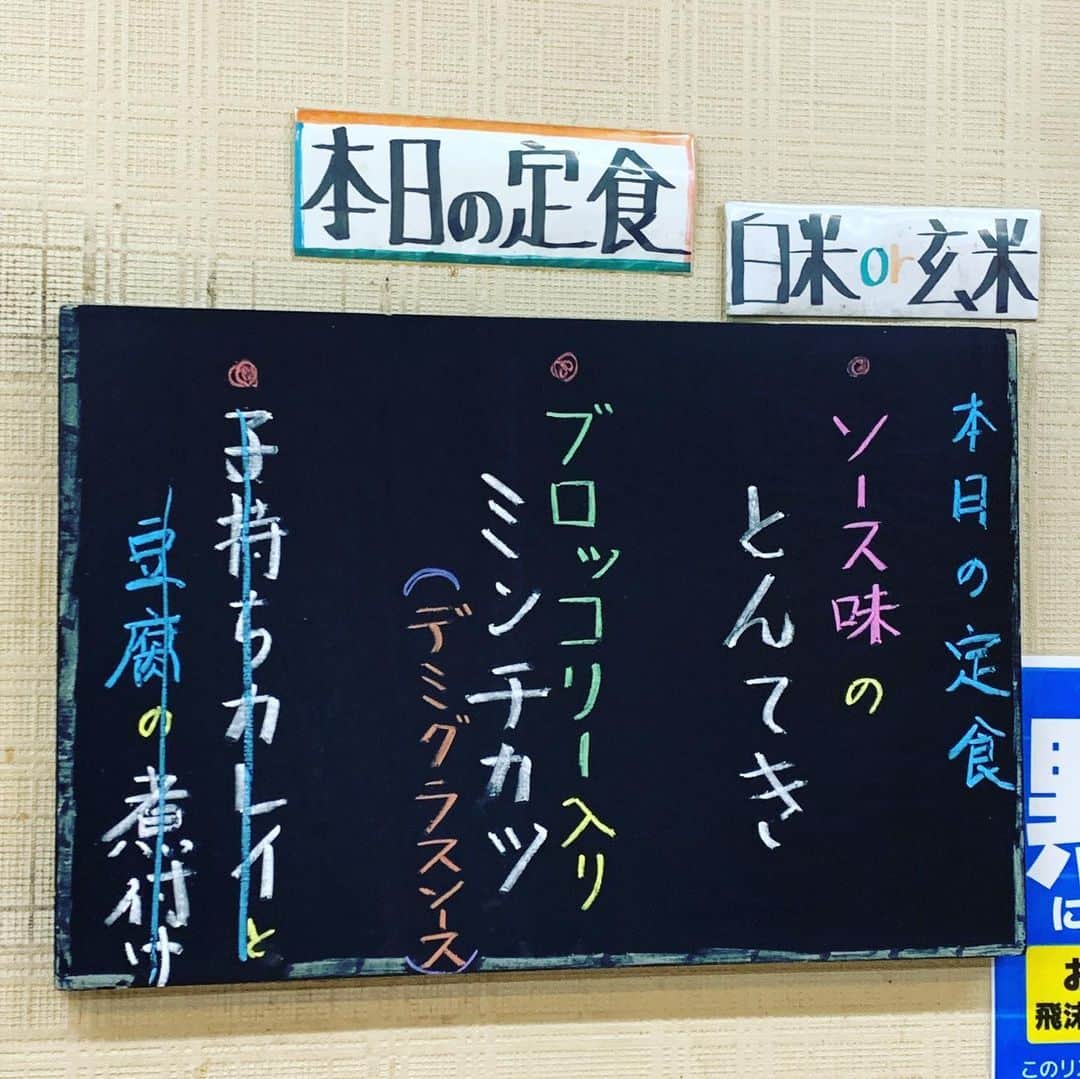 本日の定食
白米or玄米
本日の定食
ソース味の
とんてき
ブロッコリー入り
ミンチカツ
(デミグラスソース)
子持ちカレイと
豆腐の煮付け
に
お
飛沫
このリス